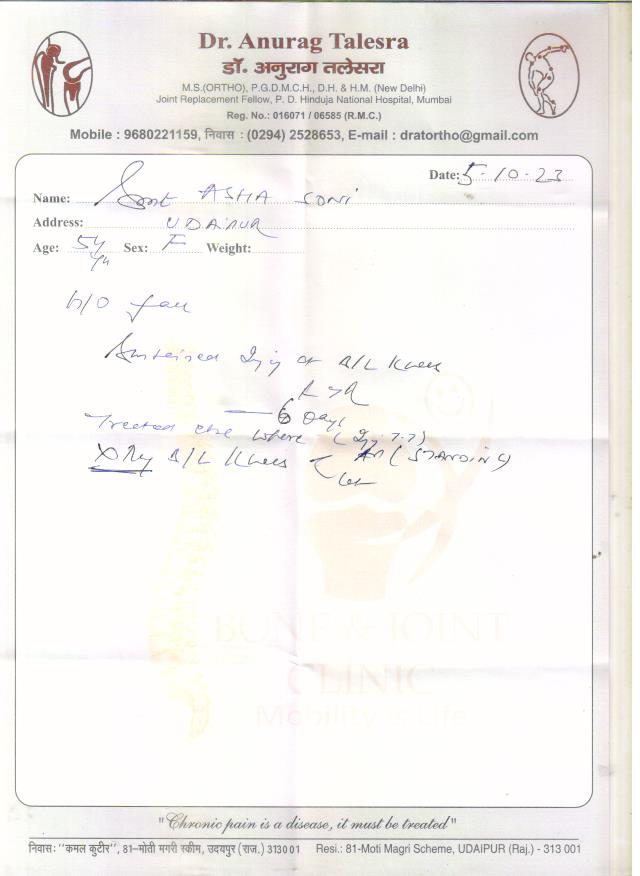 Dr. Anurag Talesra
डॉ. अनुराग तलेसरा
M.S.(ORTHO), P.G.D.M.C.H., D.H. & H.M. (New Delhi)
Joint Replacement Fellow, P. D. Hinduja National Hospital, Mumbai
Reg. No.: 016071 / 06585 (R.M.C.)
Mobile : 9680221159, निवास : (0294) 2528653, E-mail : dratortho@gmail.com
Date: 5-10-23
Name: Smt ASHA SONI
Address: UDAIPUR
Age: 54 Sex: F Weight:
H/O fall
Sustained Inj of B/L Knees
6 Days
Treated else where (Inj T.T)
X Ray B/L Knees AP (STANDING)
Lat
BONE & JOINT
CLINIC
Mobility is Life
"Chronic pain is a disease, it must be treated"
निवास: "कमल कुटीर", 81-मोती मगरी स्कीम, उदयपुर (राज.) 313001 Resi.: 81-Moti Magri Scheme, UDAIPUR (Raj.) - 313 001